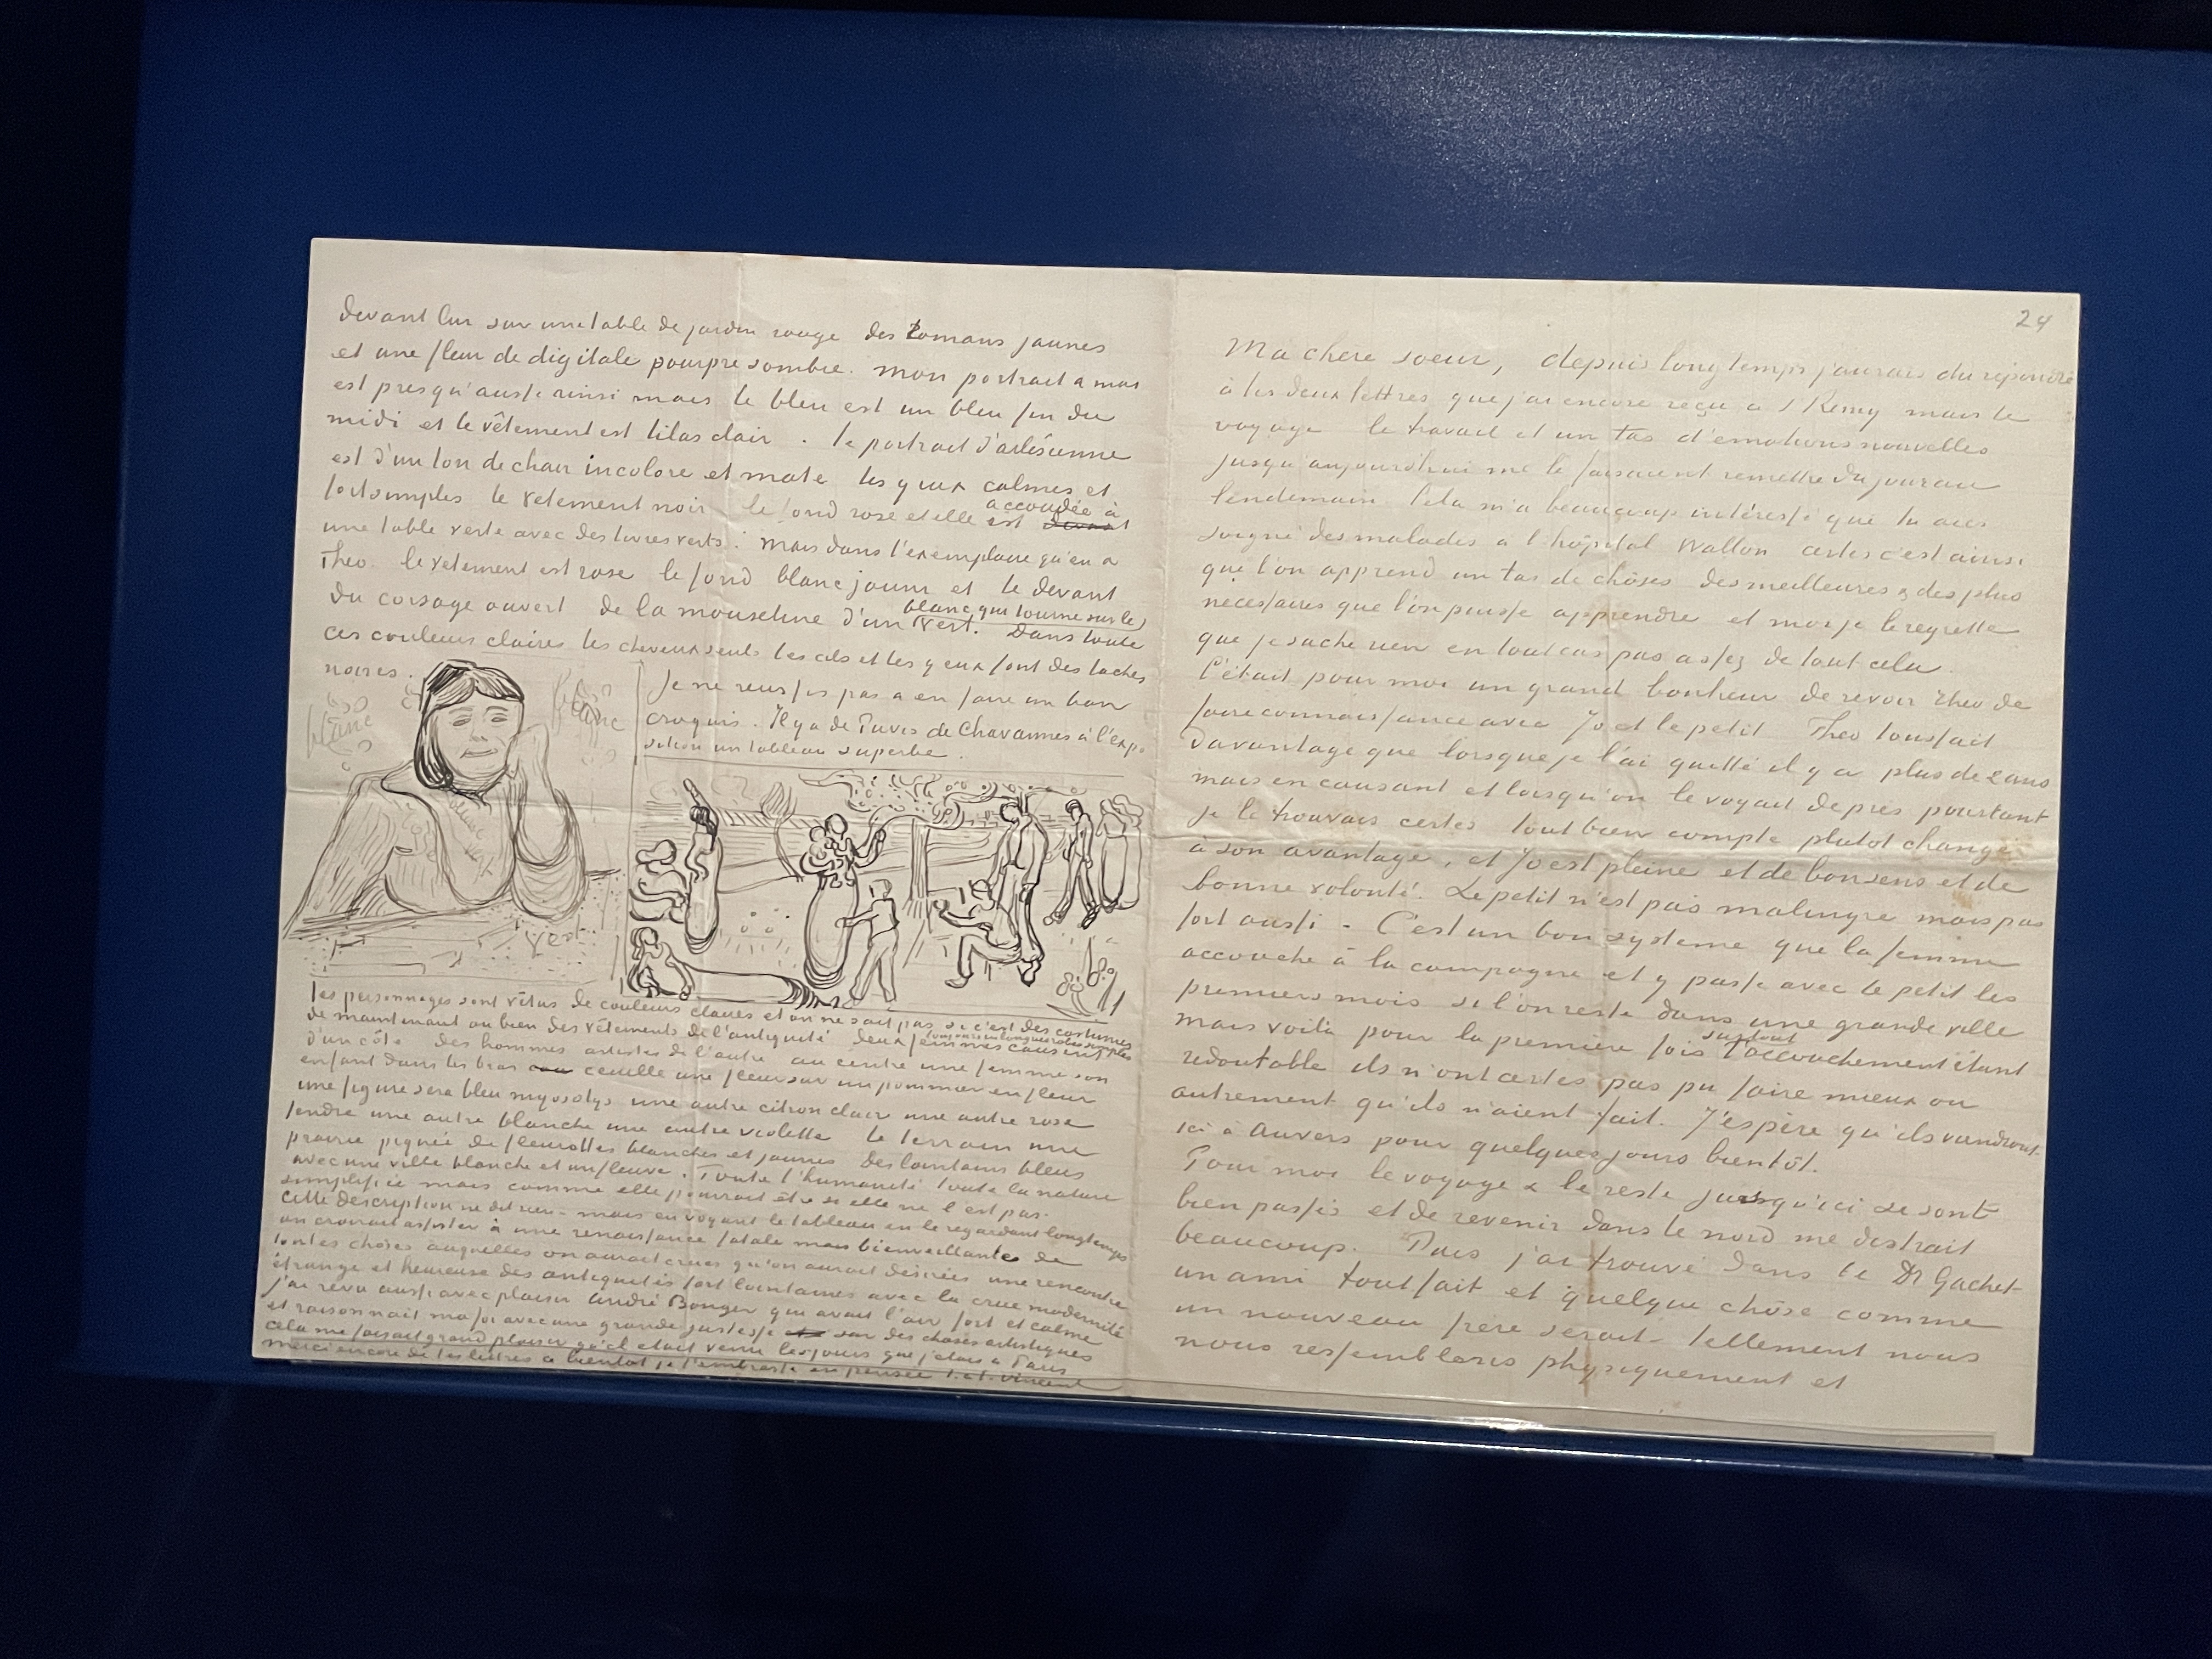 devant lui sur une table de jardin rouge des romans jaunes
et une fleur de digitale pourpre sombre. Mon portrait a moi
est presqu'aussi ainsi mais le bleu est un bleu fin du
midi et le vêtement est lilas clair. le portrait d'arlésienne
est d'un ton de chair incolore et mate les yeux calmes et
fort simples le vetement noir le fond rose et elle est accoudée à
une table verte avec des livres verts. Mais dans l'exemplaire qu'en a
Theo le vetement est rose le fond blanc jaune et le devant
du corsage ouvert de la mousseline d'un blanc qui tourne sur le
vert. Dans toute
ces couleurs claires les cheveux seuls les cils et les yeux font des taches
noires.
Je ne reussis pas a en faire un bon
croquis. Il y a de Puvis de Chavannes à l'expo
sition un tableau superbe.
blanc
blanc
vert
les personnages sont vêtus de couleurs claires et on ne sait pas si c'est des costumes
de maintenant ou bien des vêtements de l'antiquité deux femmes causent
d'un côté des hommes artistes de l'autre au centre une femme son
enfant dans les bras cueille une fleur sur un pommier en fleur
une figure sera bleu myosotys une autre citron clair une autre rose
tendre une autre blanche une autre violette le terrain une
prairie piquée de fleurettes blanches et jaunes Des lointains bleus
avec une ville blanche et un fleuve. Toute l'humanité toute la nature
simplifiée mais comme elle pourrait être si elle ne l'est pas.
Cette description ne dit rien – mais en voyant le tableau en le regardant longtemps
on croirait assister à une renaissance fatale mais bienveillante de
toutes choses auquelles on aurait crues qu'on aurait désirées une rencontre
étrange et heureuse des antiquités fort lointaines avec la crue modernité
j'ai revu aussi avec plaisir André Bonger qui avait l'air fort et calme
et raisonnait ma foi avec une grande justesse sur des choses artistiques
cela me faisait grand plaisir qu'il était venu les jours que j'étais à Paris
merci encore de tes lettres a bientôt je t'embrasse en pensée t. à t. Vincent
24
Ma chere soeur, depuis longtemps j'aurais du repondre
à tes deux lettres que j'ai encore reçu a S Remy mais le
voyage le travail et un tas d'emotions nouvelles
jusqu'aujourd'hui me le faisaient remettre du jour au
lendemain Cela m'a beaucoup intéressé que tu aies
soigné des malades a l'hôpital Wallon certes c'est ainsi
que l'on apprend un tas de chôses des meilleures & des plus
necessaires que l'on puisse apprendre et moi je le regrette
que je sache rien en tout cas pas assez de tout cela.
C'était pour moi un grand bonheur de revoir Theo de
faire connaissance avec Jo et le petit Theo toussait
davantage que lorsque je l'ai quitté il y a plus de 2 ans
mais en causant et lorsqu'on le voyait de près pourtant
je le trouvais certes tout bien compte plutot change
à son avantage, et Jo est pleine et de bon sens et de
bonne volonté. Le petit n'est pas malingre mais pas
fort aussi – C'est un bon systeme que la femme
accouche à la campagne et y passe avec le petit les
premiers mois si l'on reste dans une grande ville
mais voilà pour la première fois surtout l'accouchement étant
redoutable ils n'ont certes pas pu faire mieux ou
autrement qu'ils n'aient fait. J'espère qu'ils viendront
ici à Auvers pour quelques jours bientôt.
Pour moi le voyage & le reste jusqu'ici se sont
bien passés et de revenir dans le nord me distrait
beaucoup. Puis j'ai trouvé dans le Dr Gachet
un ami tout fait et quelque chôse comme
un nouveau frère serait – tellement nous
nous ressemblons physiquement et